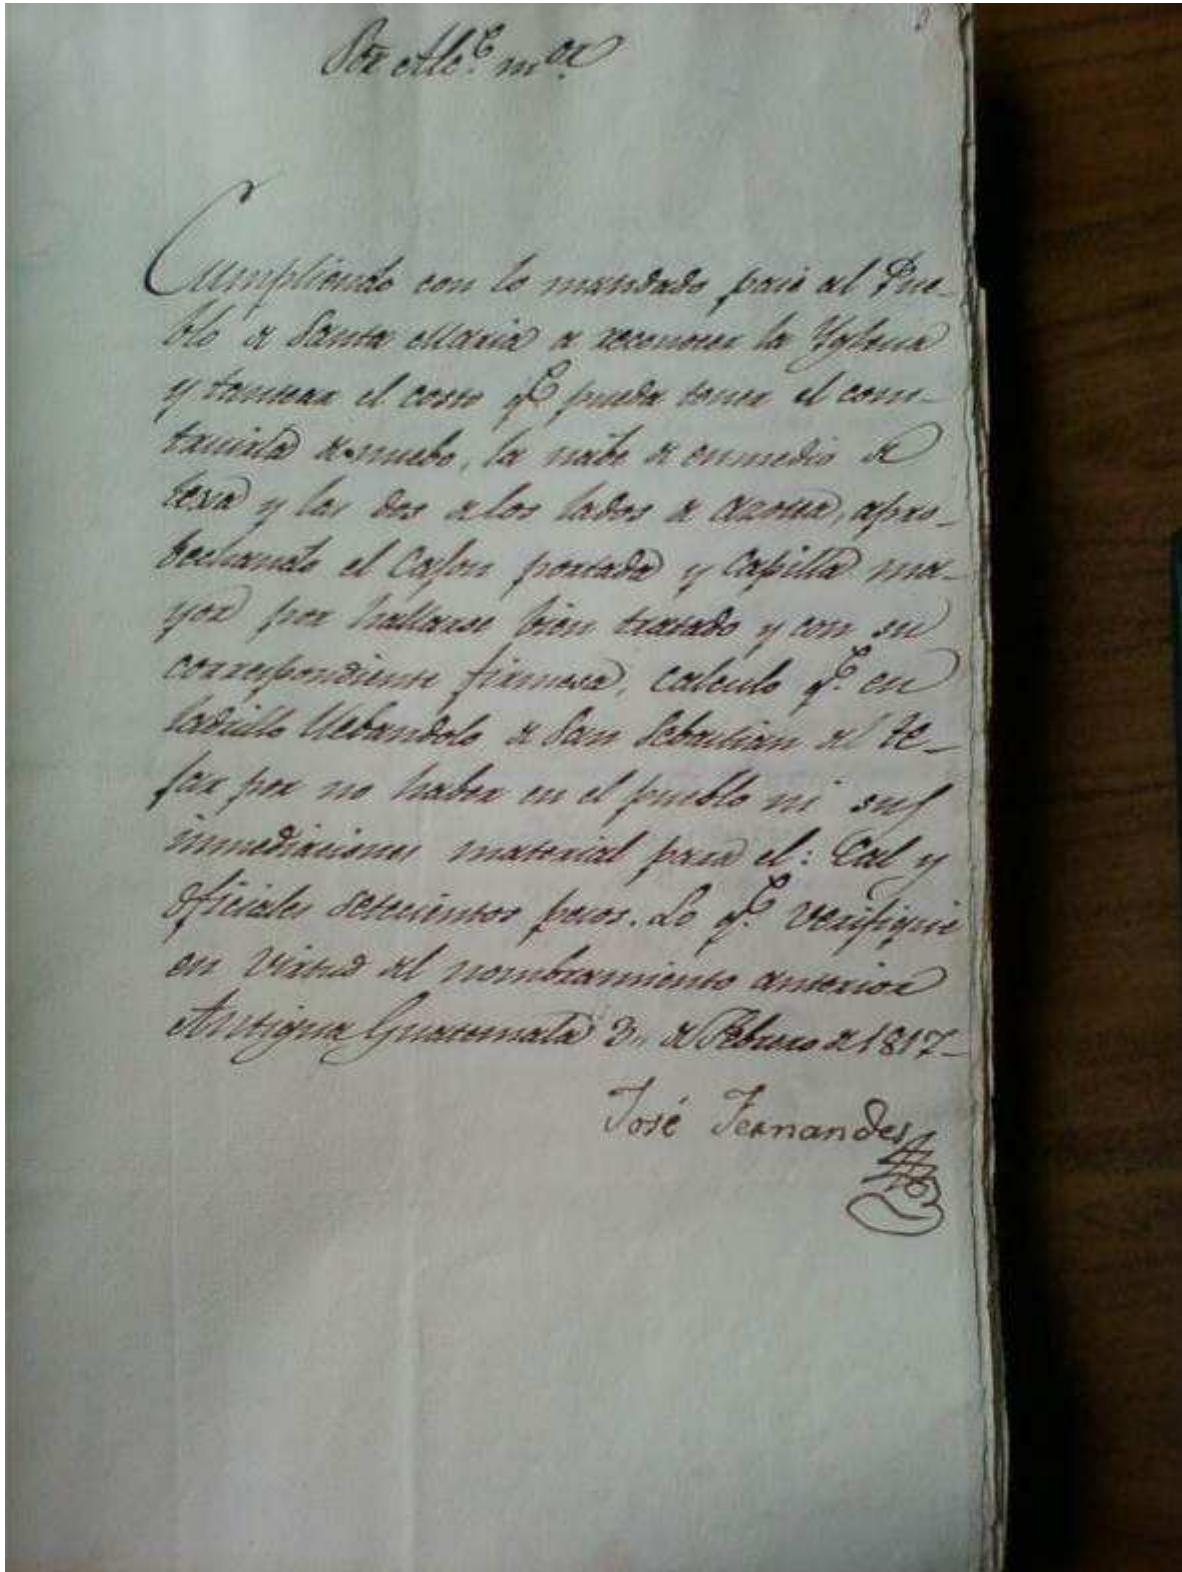 Sor Alce mor
Cumpliendo con lo mandado pasé al Pue-
blo de Santa Maria a reconoser la Yglesia
y tantear el costo q.e pueda tener el cons-
truirla de nuebo, la nabe de enmedio de
texa y las dos a los lados de azotea, apro-
bechando el Cajon portada y Capilla ma-
yor por hallarse bien tratado y con su
correspondiente firmesa, calculo q.e en
ladrillo llebandolo de San Sebastian el te-
jar por no haber en el pueblo ni sus
inmediaciones material para el: Cal y
oficiales setecientos pesos. Lo q.e verifiqué
en virtud del nombramiento anterior
Antigua Guatemala 3,, de Febrero de 1817-
José Fernandes